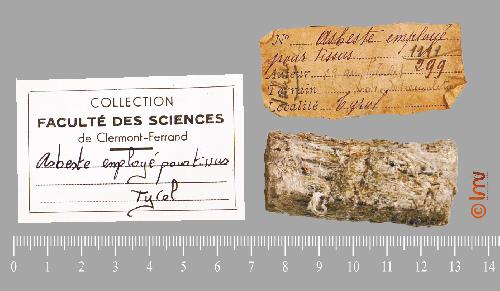 COLLECTION
FACULTÉ DES SCIENCES
de Clermont-Ferrand
Asbeste employé pour tissus
Tyrol
No Asbeste employé
pour tissus
299
Terrain
Localité Tyrol
lmv
0 1 2 3 4 5 6 7 8 9 10 11 12 13 14